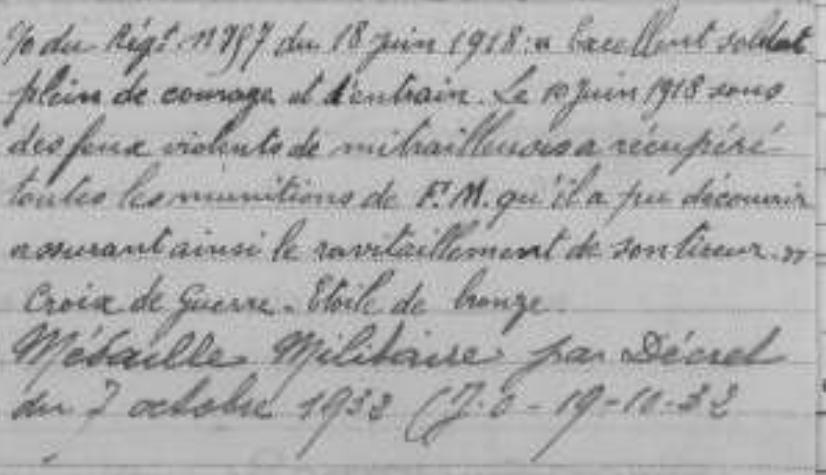 % du Régt. n° 797 du 18 juin 1918 : " Excellent soldat
plein de courage et d'entrain. Le 10 juin 1918 sous
des feux violents de mitrailleuses a récupéré
toutes les munitions de F.M. qu'il a pu découvrir
assurant ainsi le ravitaillement de son tireur. "
Croix de Guerre. Etoile de bronze.
Médaille Militaire par Décret
du 7 octobre 1932 (J.O - 19-10-32